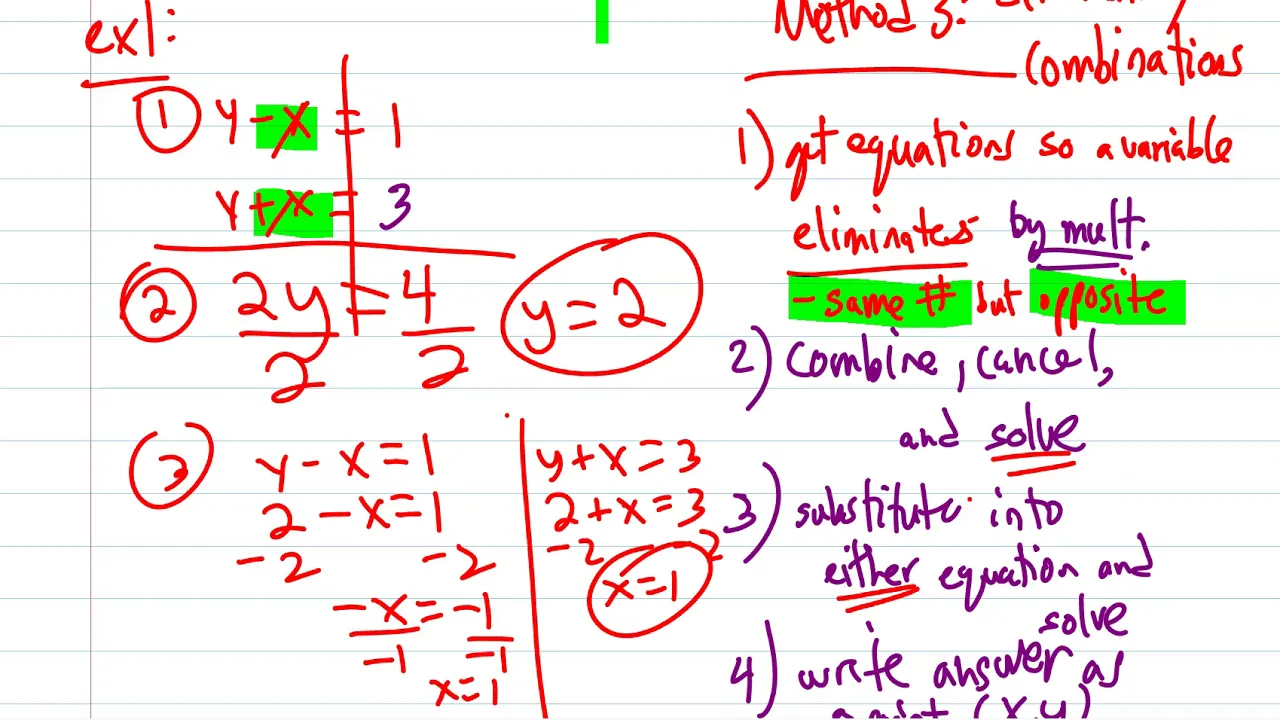 ex1:
① y - x = 1
y + x = 3
② 2y = 4
2 2
y = 2
③ y - x = 1
2 - x = 1
-2 -2
-x = -1
-1 -1
x = 1
y + x = 3
2 + x = 3
-2 -2
x = 1
Method 3:
Combinations
1) get equations so a variable
eliminates by mult.
- same # but opposite
2) Combine, cancel,
and solve
3) substitute into
either equation and
solve
4) write answer as
a point (x,y)